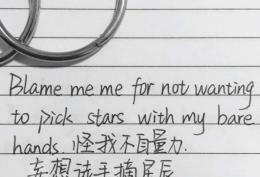 Blame me me for not wanting
to pick stars with my bare
hands. 怪我不自量力.
妄想徒手摘星辰